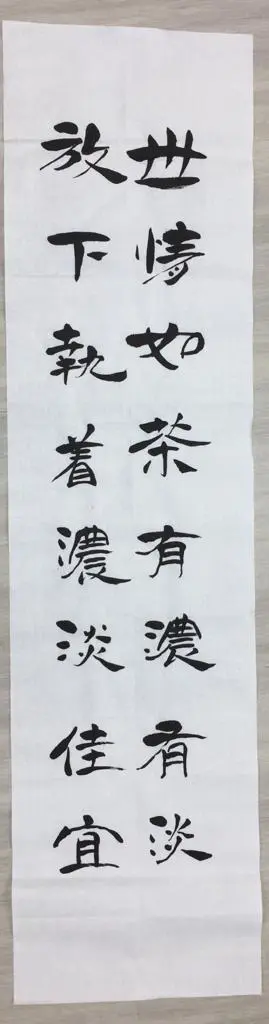 世情如茶有濃有淡
放下執着濃淡佳宜